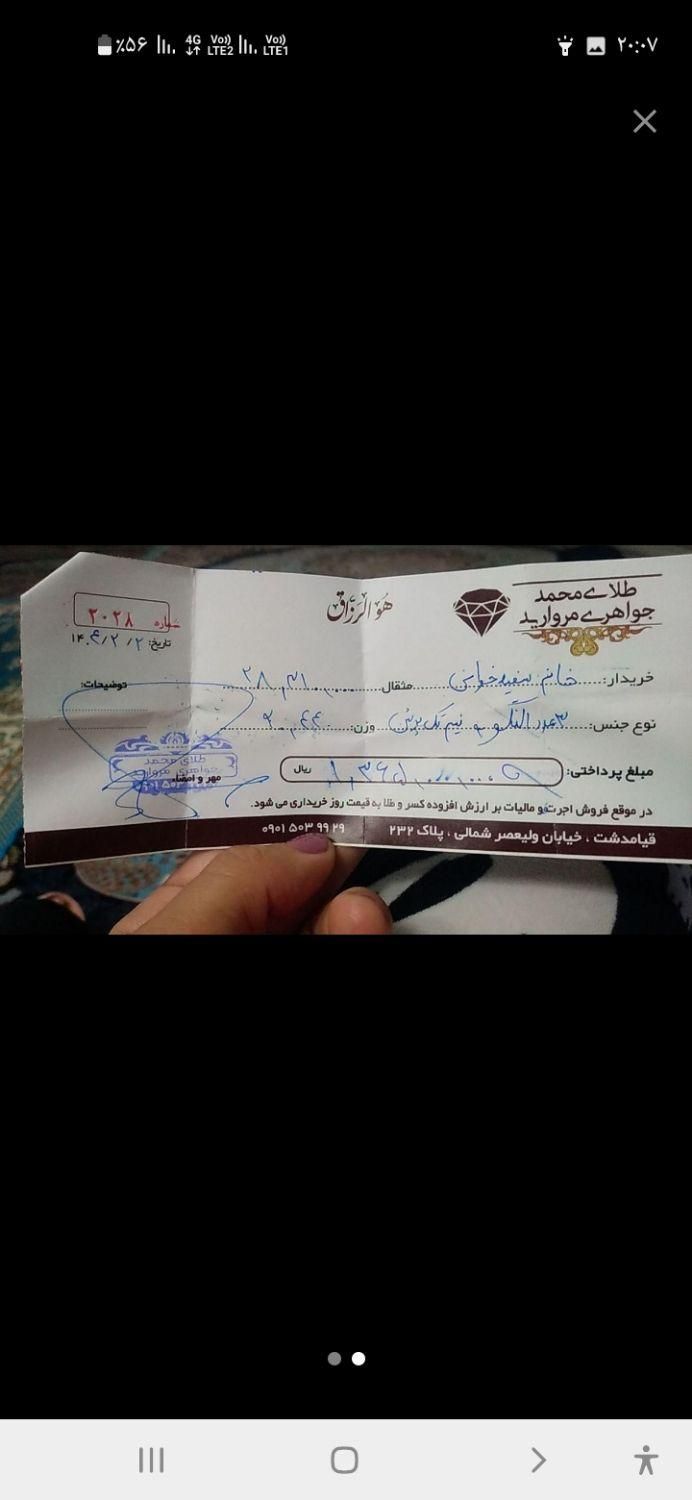 ٪۵۶ 4G Vo)) LTE2 Vo)) LTE1 ۲۰:۰۷
طلای محمد
جواهری مروارید
هُوَ الرَزّاق
شماره ۲۰۲۸
تاریخ: ۱۴۰۴/۲/۲
خریدار: خانم مثقال
توضیحات:
نوع جنس: ۳ عدد النگو و نیم وزن:
مبلغ پرداختی: ریال
مهر و امضاء
طلای محمد
جواهری مروارید
در موقع فروش اجرت و مالیات بر ارزش افزوده کسر و طلا به قیمت روز خریداری می شود.
قیامدشت ، خیابان ولیعصر شمالی ، پلاک ۲۳۲
۰۹۰۱ ۵۰۳ ۹۹ ۲۹